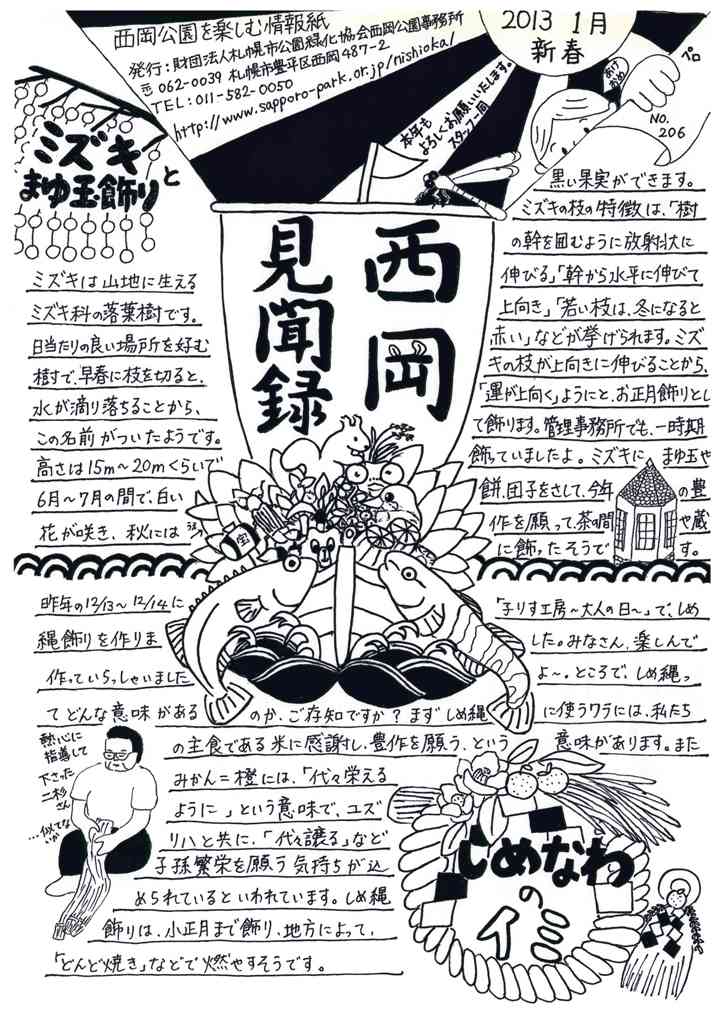 西岡公園を楽しむ情報紙
発行：財団法人札幌市公園緑化協会西岡公園事務所
〒062-0039 札幌市豊平区西岡487-2
TEL：011-582-0050
http://www.sapporo-park.or.jp/nishioka/
2013 1月
新春
プロ
あけ
おめ
NO.
206
本年も
よろしくお願いいたします。
スタッフ一同
西岡
見聞録
ミズキと
まゆ玉飾り
ミズキは山地に生える
ミズキ科の落葉樹です。
日当たりの良い場所を好む
樹で、早春に枝を切ると、
水が滴り落ちることから、
この名前がついたようです。
高さは15m～20mくらいで
6月～7月の間で、白い
花が咲き、秋には
黒い果実ができます。
ミズキの枝の特徴は、「樹
の幹を囲むように放射状に
伸びる」「幹から水平に伸びて
上向き」「若い枝は、冬になると
赤い」などが挙げられます。ミズ
キの枝が上向きに伸びることから、
「運が上向く」ようにと、お正月飾りとし
て飾ります。管理事務所でも、一時期
飾っていましたよ。ミズキに まゆ玉や
餅、団子をさして、今年 の豊
作を願って、茶の間 や蔵
に飾ったそうで す。
宝
昨年の12/13～12/14に 「子りす工房～大人の日～」で、しめ
縄飾りを作りま した。みなさん、楽しんで
作っていらっしゃいました よ～。ところで、しめ縄っ
てどんな意味がある のか、ご存知ですか？まずしめ縄 に使うワラには、私たち
の主食である米に感謝し、豊作を願う、という 意味があります。また
みかん=橙には、「代々栄える
ように」という意味で、ユズ
リハと共に、「代々譲る」など
子孫繁栄を願う気持ちが込
められているといわれています。しめ縄
飾りは、小正月まで飾り、地方によって、
「どんど焼き」などで燃やすそうです。
熱心に
指導して
下さった
二杉
さん
…似てな
いか
しめなわ
の
イミ